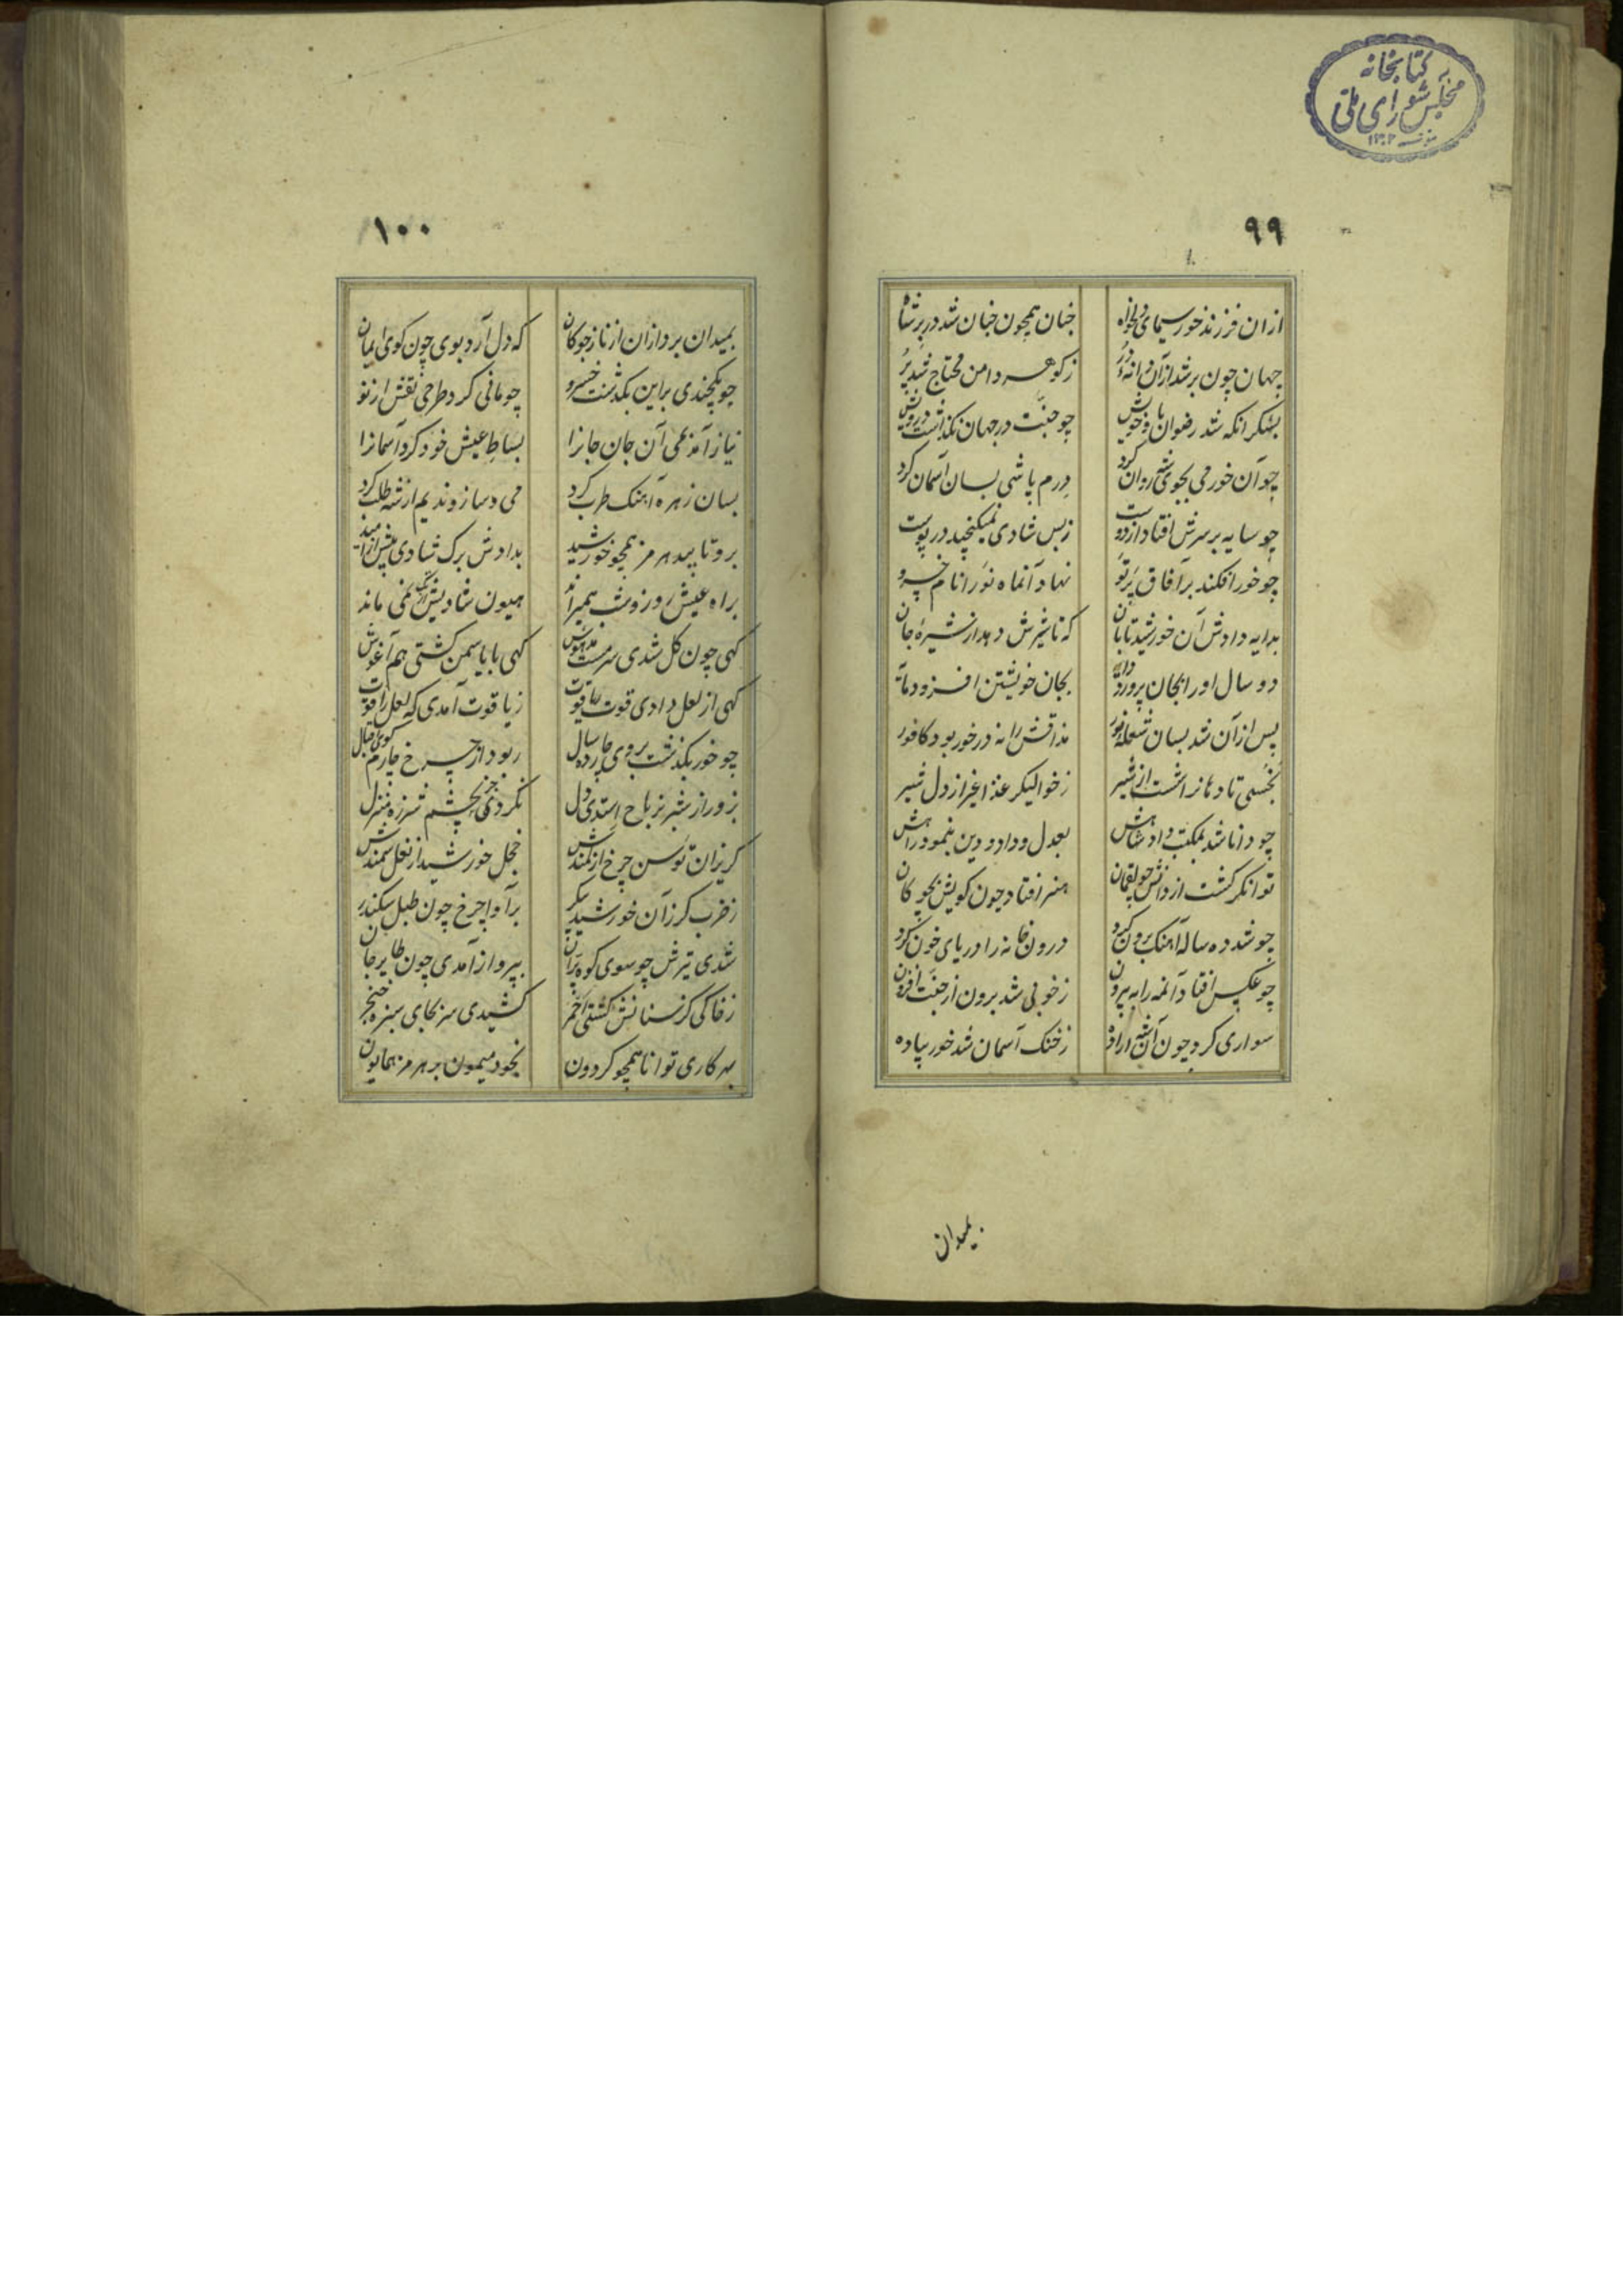 کتابخانه
مجلس شورای ملی
۹۹
ازان فرزند خور سیمای دلخواه
جنان همچون جنان شد در بر شاه
جهان چون بر شد ازان دانه در
ز کوهر دامن محتاج شد پر
بشکر انکه شد رضوان با خویش
چو جنت در جهان نکذاشت درویش
چو آن خور می بجوی شه روان کرد
درم پاشی بسان آسمان کرد
چو سایه بر سرش افتاد از دوست
ز بس شادی نمیکنجید در پوست
چو خور افکند بر آفاق پرتو
نهاد آنماه نو را نام خسرو
بدایه دادش آن خورشید تابان
که تا شیرش دهد از شیره جان
دو سال او را بجان پرورد دایه
بجان خویشتن افزود مایه
پس از آن شد بسان شعله نور
مذاقش را نه در خور بود کافور
بخستی تا دهانرا شست از شیر
ز خوالیکر غذا غیر از دل شیر
چو دانا شد بمکتب داد شاهش
بعدل و داد و دین بنمود راهش
توانکر کشت از دانش چو لقمان
هنر افتاد چون کویش بچوکان
چو شد ده ساله آهنک برون کرد
درون خانه را دریای خون کرد
چو عکس افتاد آنمه را به بیرون
ز خوبی شد برون از جنت افزون
سواری کرد چون آن شاه ازاده
ز خنک آسمان شد خور پیاده
بمیدان
۱۰۰
بمیدان برد ازان از ناز چوکان
که دل آرد بوی چون کوی ایمان
چو یکچندی براین بکذشت خسرو
چو مانی کرد طرحی نقش از نو
نیاز آمد بمی آن جان جانرا
بساط عیش خود کرد آسمانرا
بسان زهره آهنک طرب کرد
می و ساز و ندیم از شه طلب کرد
برو تابید هرمز همچو خورشید
بدادش برک شادی بیش از امید
براه عیش روز و شب همیراند
همیون شادیش از تک نمی ماند
کهی چون کل شدی سرمست مدهوش
کهی با یاسمن کشتی هم آغوش
کهی از لعل دادی قوت یاقوت
ز یاقوت آمدی که لعل را قوت
چو خور بکذشت بروی چارده سال
ربود از چرخ چارم کوی اقبال
بزور از شیر نر باج استدی دل
نکردی جز بچشم شرزه منزل
کریزان توسن چرخ از کمندش
خجل خورشید از نعل سمندش
ز ضرب کرز آن خورشید پیکر
برآوا چرخ چون طبل سکندر
شدی تیرش چو سوی کوه پران
بپرواز آمدی چون طایر جان
ز خاکی کز سنانش کشتی احمر
کشیدی سر بجای سبزه خنجر
بهر کاری توانا همچو کردون
بخود میمون بر هرمز همایون